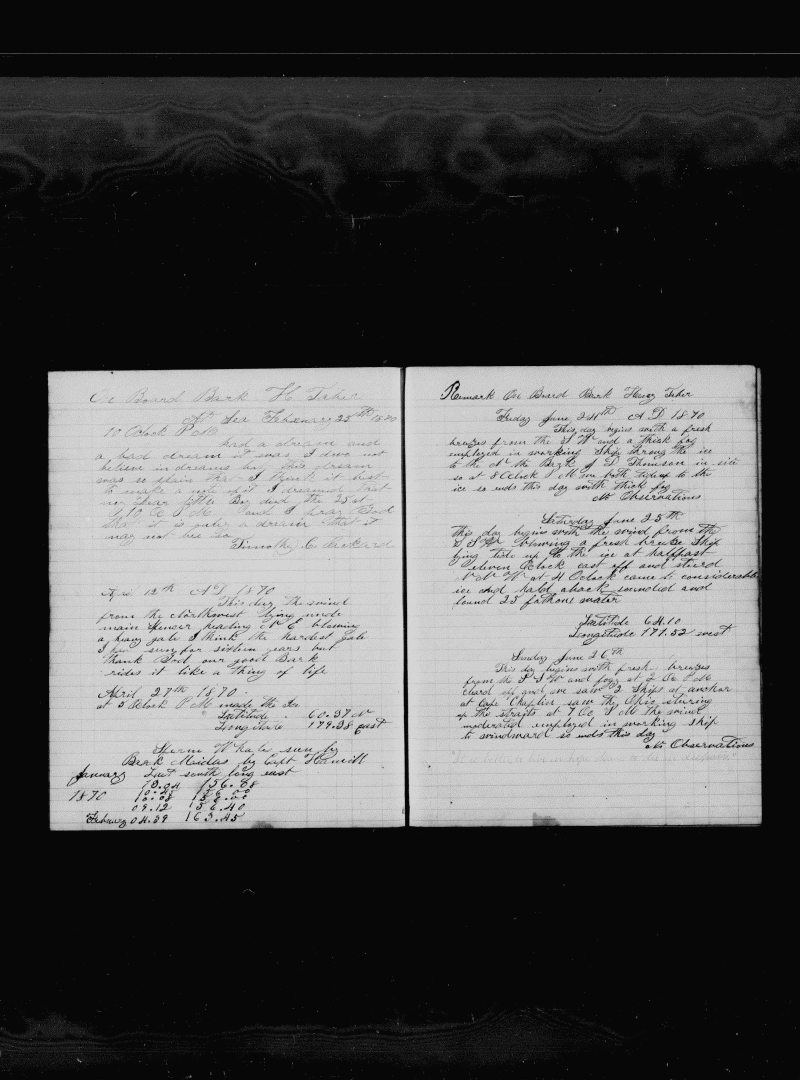 On Board Bark H Taber
At Sea February 25th 1870
10 Oclock P M
had a dream and
a bad dream it was I due not
believe in dreams but this dream
was so plain that I think it best
to make a note of it I dreamed that
my dear little Be died the 25 at
10 Oc P M and I pray God
that it is only a dream that it
may not bee so
Timothy C Packard
Apr 12th A D 1870
This day the wind
from the Northwest lying under
main spencer heading N E blowing
a heavy gale I think the hardest gale
I have seen for sixteen years but
thank God our good Bark
rides it like a thing of life
April 27th 1870
at 5 Oclock P M made the Ice
Latitude . 60.37 N
" Longitude 179.38 East
Sperm Whale seen by
Bark Midas by Capt Hamill
January Lat south long east
13.04 156.08
1870
10.08
09.12 156.40
Febuary 04.39 163.45
Remark On Board Bark Henry Taber
Friday June 24th A D 1870
This day begins with a fresh
breezes from the S W and a thick fog
employed in working Ship throug the ice
to the N the Bark J D Thomson in site
so at 8 Oclock P M we both tied up to the
ice so ends this day with thick fog
No Observations
Saturday June 25th
this day begins with the wind from the
S S W blowing a fresh breeze Ship
lying tide up to the ice at halfpast
eleven Oclock cast off and steerd
N N W at 4 Oclock came to considerable
ice and hald aback sounded and
found 25 fathoms water
Latitude 64.10
Longitude 171.52 west
Sunday June 26th
This day begins with fresh breezes
from the S S W and fogg at 2 Oc P M
cleard up and we saw 2 Ships at anchor
at Cape Chaplin saw the Ohio stering
up the straits at 7 Oc P M the wind
moderated employed in working ship
to windward so ends this day
No Observations